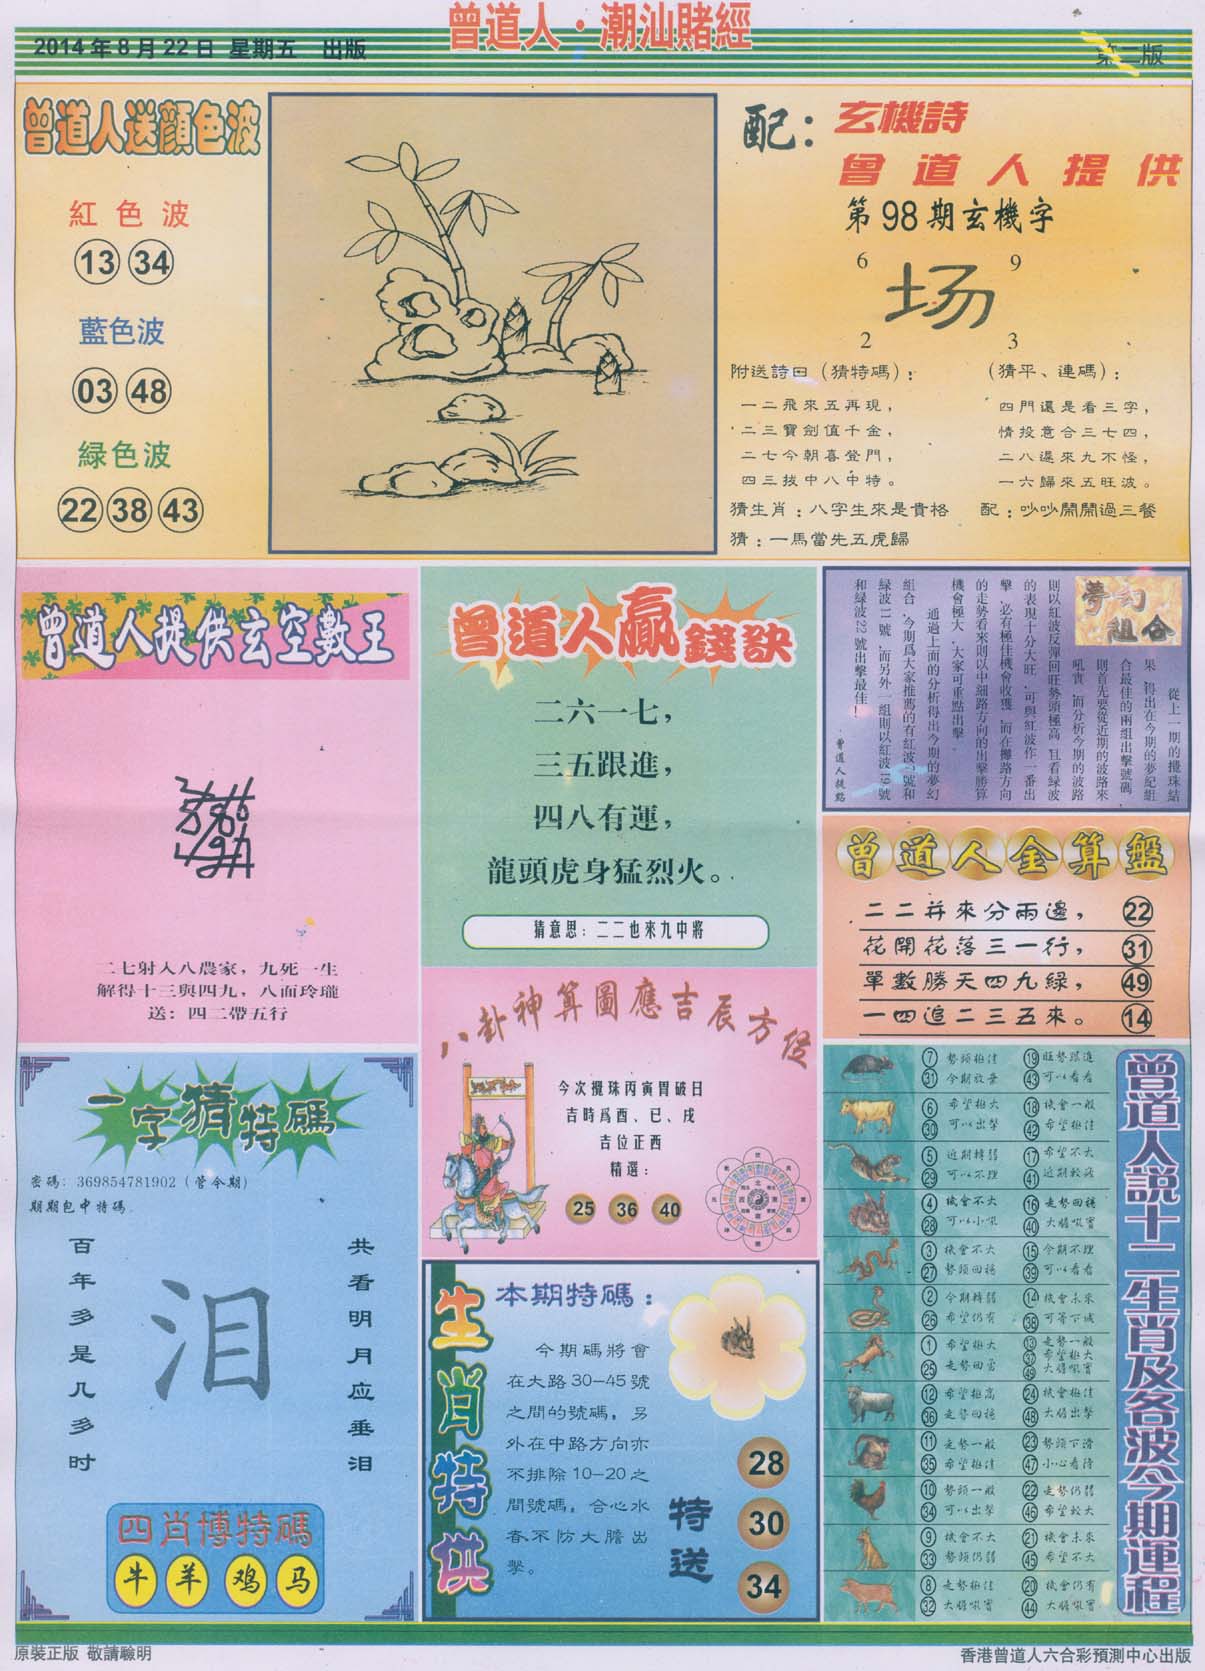 曾道人·潮汕賭經
2014年8月22日 星期五 出版
第二版
曾道人送顏色波
紅色波
13 34
藍色波
03 48
綠色波
22 38 43
配：
玄機詩
曾道人提供
第98期玄機字
6 9
场
2 3
附送詩曰（猜特碼）：
一二飛來五再現，
二三寶劍值千金，
二七今朝喜登門，
四三找中八中特。
（猜平、連碼）：
四門還是看三字，
情投意合三七四，
二八還來九不怪，
一六歸來五旺波。
猜生肖：八字生來是貴格
配：吵吵鬧鬧過三餐
猜：一馬當先五虎歸
曾道人提供玄空數王
二七射入八農家，九死一生
解得十三與四九，八面玲瓏
送：四二帶五行
曾道人贏錢訣
二六一七，
三五跟進，
四八有運，
龍頭虎身猛烈火。
猜意思：二二也來九中將
夢幻
組合
從上一期的攪珠結
果，得出在今期的夢幻組
合最佳的兩組出擊號碼，
則首先要從近期的波路來
吼實，而分析今期的波路
則以紅波反彈回旺勢頭極高，且看綠波
的表現十分大旺，可與紅波作一番出
擊，必有極佳機會收獲，而在攤路方向
的走勢看來則以中細路方向的出擊勝算
機會極大，大家可重點出擊。
通過上面的分析得出今期的夢幻
和綠波22號出擊最佳！
曾道人提點
曾道人金算盤
二二并來分兩邊， 22
花開花落三一行， 31
單數勝天四九綠， 49
一四追二三五來。 14
一字猜特碼
密碼：369854781902（管令期）
期期包中特碼
百年多是几多时
泪
共看明月应垂泪
四肖博特碼
牛 羊 鸡 马
八卦神算圖應吉辰方位
今次攪珠丙寅胃破日
吉時爲酉、巳、戌
吉位正西
精選：
25 36 40
生肖特供
本期特碼：
今期碼將會
在大路30—45號
之間的號碼，另
外在中路方向亦
不排除10—20之
間號碼，合心水
者不防大膽出
擊。
特送
28
30
34
曾道人說十二生肖及各波今期運程
7 勢頭極佳 19 旺勢跟進
31 今期放棄 43 可以看看
6 希望極大 18 機會一般
30 可以出擊 42 希望極佳
5 近期轉弱 17 希望不大
29 可以不理 41 近期較落
4 機會不大 16 走勢回穩
28 可以小吼 40 大膽吼實
3 機會不大 15 今期不理
27 勢頭回穩 39 可以看看
2 今期轉弱 14 機會未來
26 希望仍有 38 可等下城
1 希望極大 13 走勢一般
25 走勢回勇 37 希望極大
49 大膽吼實
12 希望極高 24 機會極佳
36 走勢回穩 48 大膽出擊
11 走勢一般 23 勢頭下滑
35 希望極佳 47 小心看待
10 勢頭一般 22 走勢仍弱
34 可以出擊 46 希望較大
9 機會不大 21 機會未來
33 勢頭仍弱 45 希望不大
8 走勢極佳 20 機會仍有
32 大膽吼實 44 大膽吼實
原裝正版 敬請驗明
香港曾道人六合彩預測中心出版